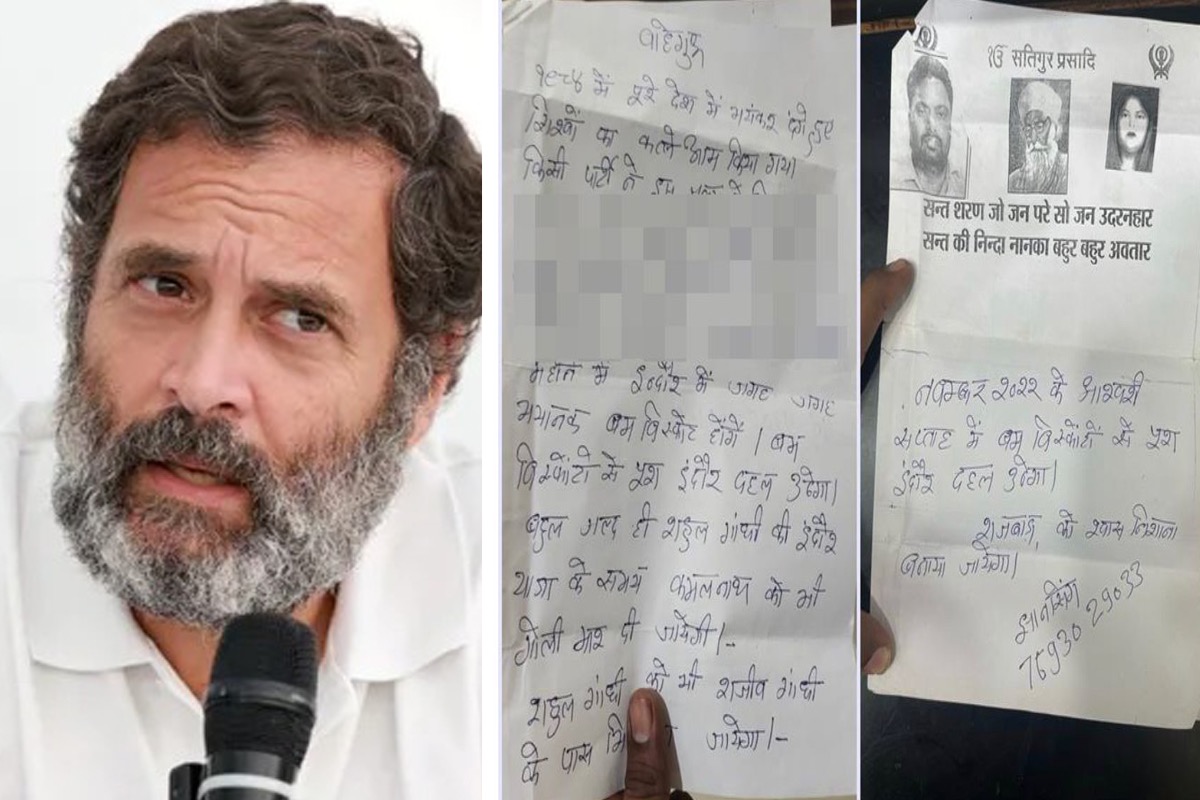 वाहेगुरू
१९८४ में पूरे देश में भयंकर दंगे हुए
सिखों का कत्ले आम किया गया
किसी पार्टी ने इस
में इन्दौर में जगह जगह
भयानक बम विस्फोट होंगे। बम
विस्फोटों से पूरा इंदौर दहल उठेगा।
बहुत जल्द ही राहुल गांधी की इंदौर
यात्रा के समय कमलनाथ को भी
गोली मार दी जायेगी।-
राहुल गांधी को भी राजीव गांधी
के पास जायेगा।-
ੴ सतिगुर प्रसादि
सन्त शरण जो जन परे सो जन उदरनहार
सन्त की निन्दा नानका बहुर बहुर अवतार
नवम्बर २०२२ के आखरी
सप्ताह में बम विस्फोटों से पूरा
इंदौर दहल उठेगा।
राजबाड़ा को खास निशाना
बनाया जायेगा।
ज्ञानसिंग
76930 29033